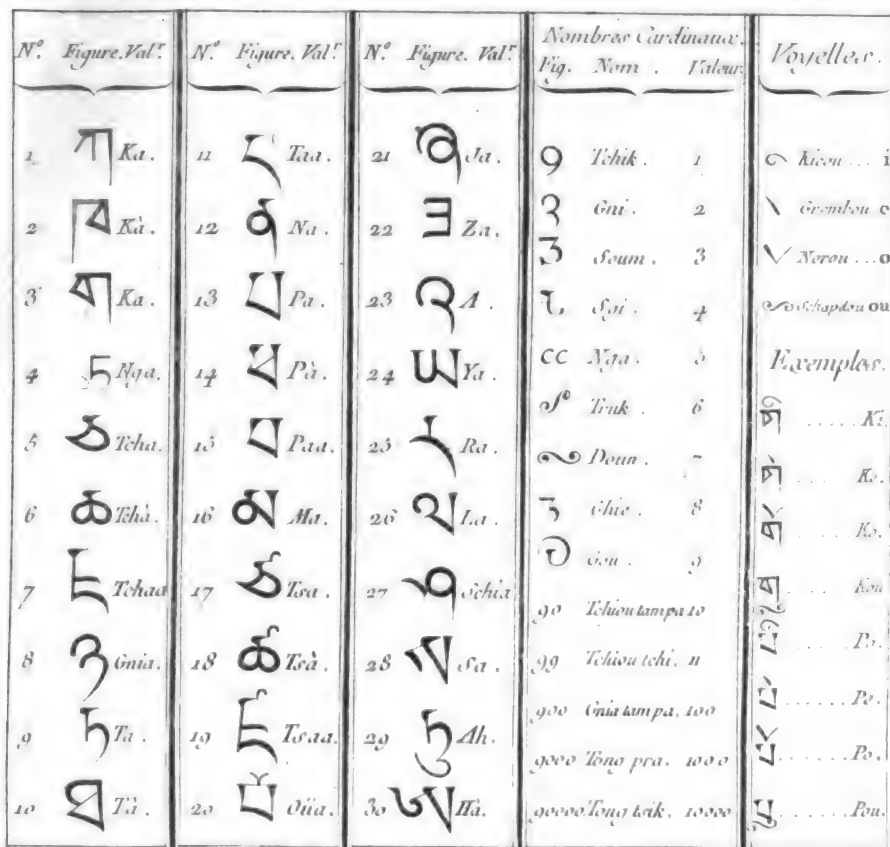 N.º Figure. Val.r
1 ཀ Ka.
2 ཁ Kà.
3 ག Ka.
4 ང Nga.
5 ཅ Tcha.
6 ཆ Tchà.
7 ཇ Tchaa
8 ཉ Gnia.
9 ཏ Ta.
10 ཐ Tà.
N.º Figure. Val.r
11 ད Taa.
12 ན Na.
13 པ Pa.
14 ཕ Pà.
15 བ Paa.
16 མ Ma.
17 ཙ Tsa.
18 ཚ Tsà.
19 ཛ Tsaa.
20 ཝ Oüa.
N.º Figure. Val.r
21 ཞ Ja.
22 ཟ Za.
23 འ A.
24 ཡ Ya.
25 ར Ra.
26 ལ La.
27 ཤ Schia
28 ས Sa.
29 ཧ Ah.
30 ཨ Hà.
Nombres Cardinaux.
Fig. Nom. Valeur.
༡ Tchik. 1
༢ Gni. 2
༣ Soum. 3
༤ Sgi. 4
༥ Nga. 5
༦ Truk. 6
༧ Doun. 7
༨ Ghie. 8
༩ Gou. 9
༡༠ Tchioutampa 10
༡༡ Tchioutchi. 11
༡༠༠ Gniatampa. 100
༡༠༠༠ Tong pra. 1000
༡༠༠༠༠ Tong tsik. 10000
Voyelles.
ི Kicou ... i
ེ Grembou e
ོ Norou ... o
ུ Schapdou ou
Exemples.
..... Ki.
.... Ke.
.... Ko.
.... Kou
པི ..... Pi.
པེ ..... Pe.
པོ ..... Po.
པུ ..... Pou.